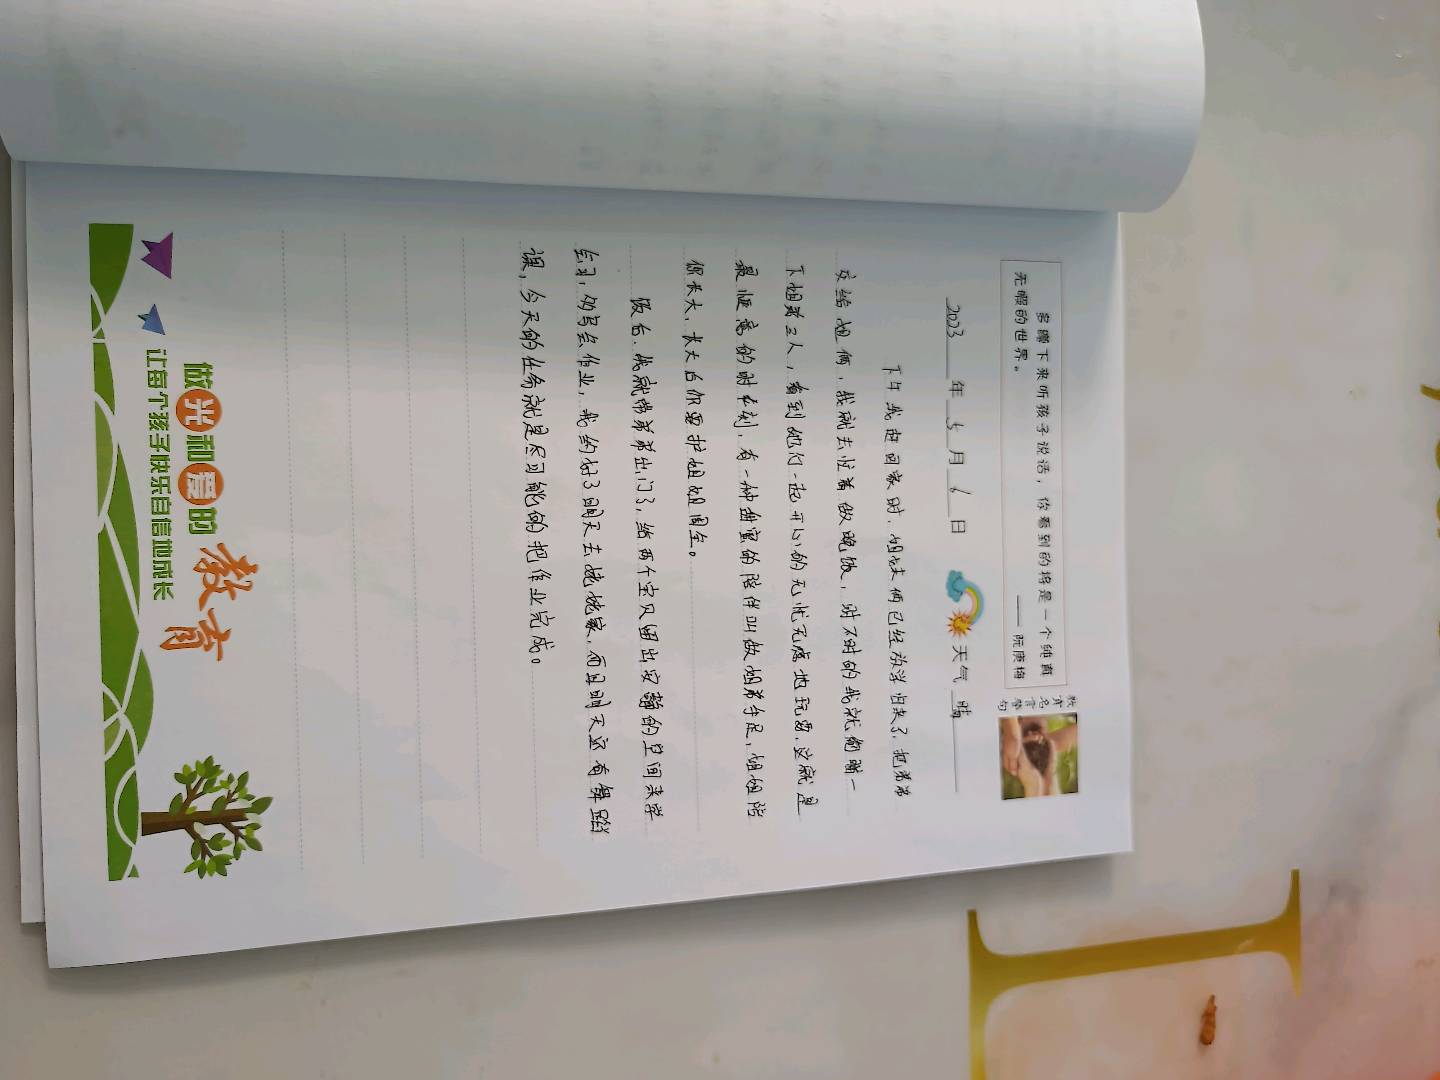 多蹲下来听孩子说话，你看到的将是一个纯真
无暇的世界。
——阮庚梅
教育名言警句
2023年5月6日 天气 晴
下午我赶回家时，姐妹俩已经放学归来了，把弟弟
交给姐俩，我就去忙着做晚饭，时不时的我就偷瞄一
下姐弟三人，看到她们一起开心的无忧无虑地玩耍，这就是
最惬意的时刻，有一种甜蜜的陪伴叫做姐弟手足，姐姐陪
你长大，长大后你要护姐姐周全。
饭后，我就带弟弟出门了，给两个宝贝留出安静的空间来学
会习，多写会作业，我约好了明天去姥姥家，而且明天还有舞蹈
课，今天的任务就是尽可能的把作业完成。
做光和爱的教育
让每个孩子快乐自信地成长